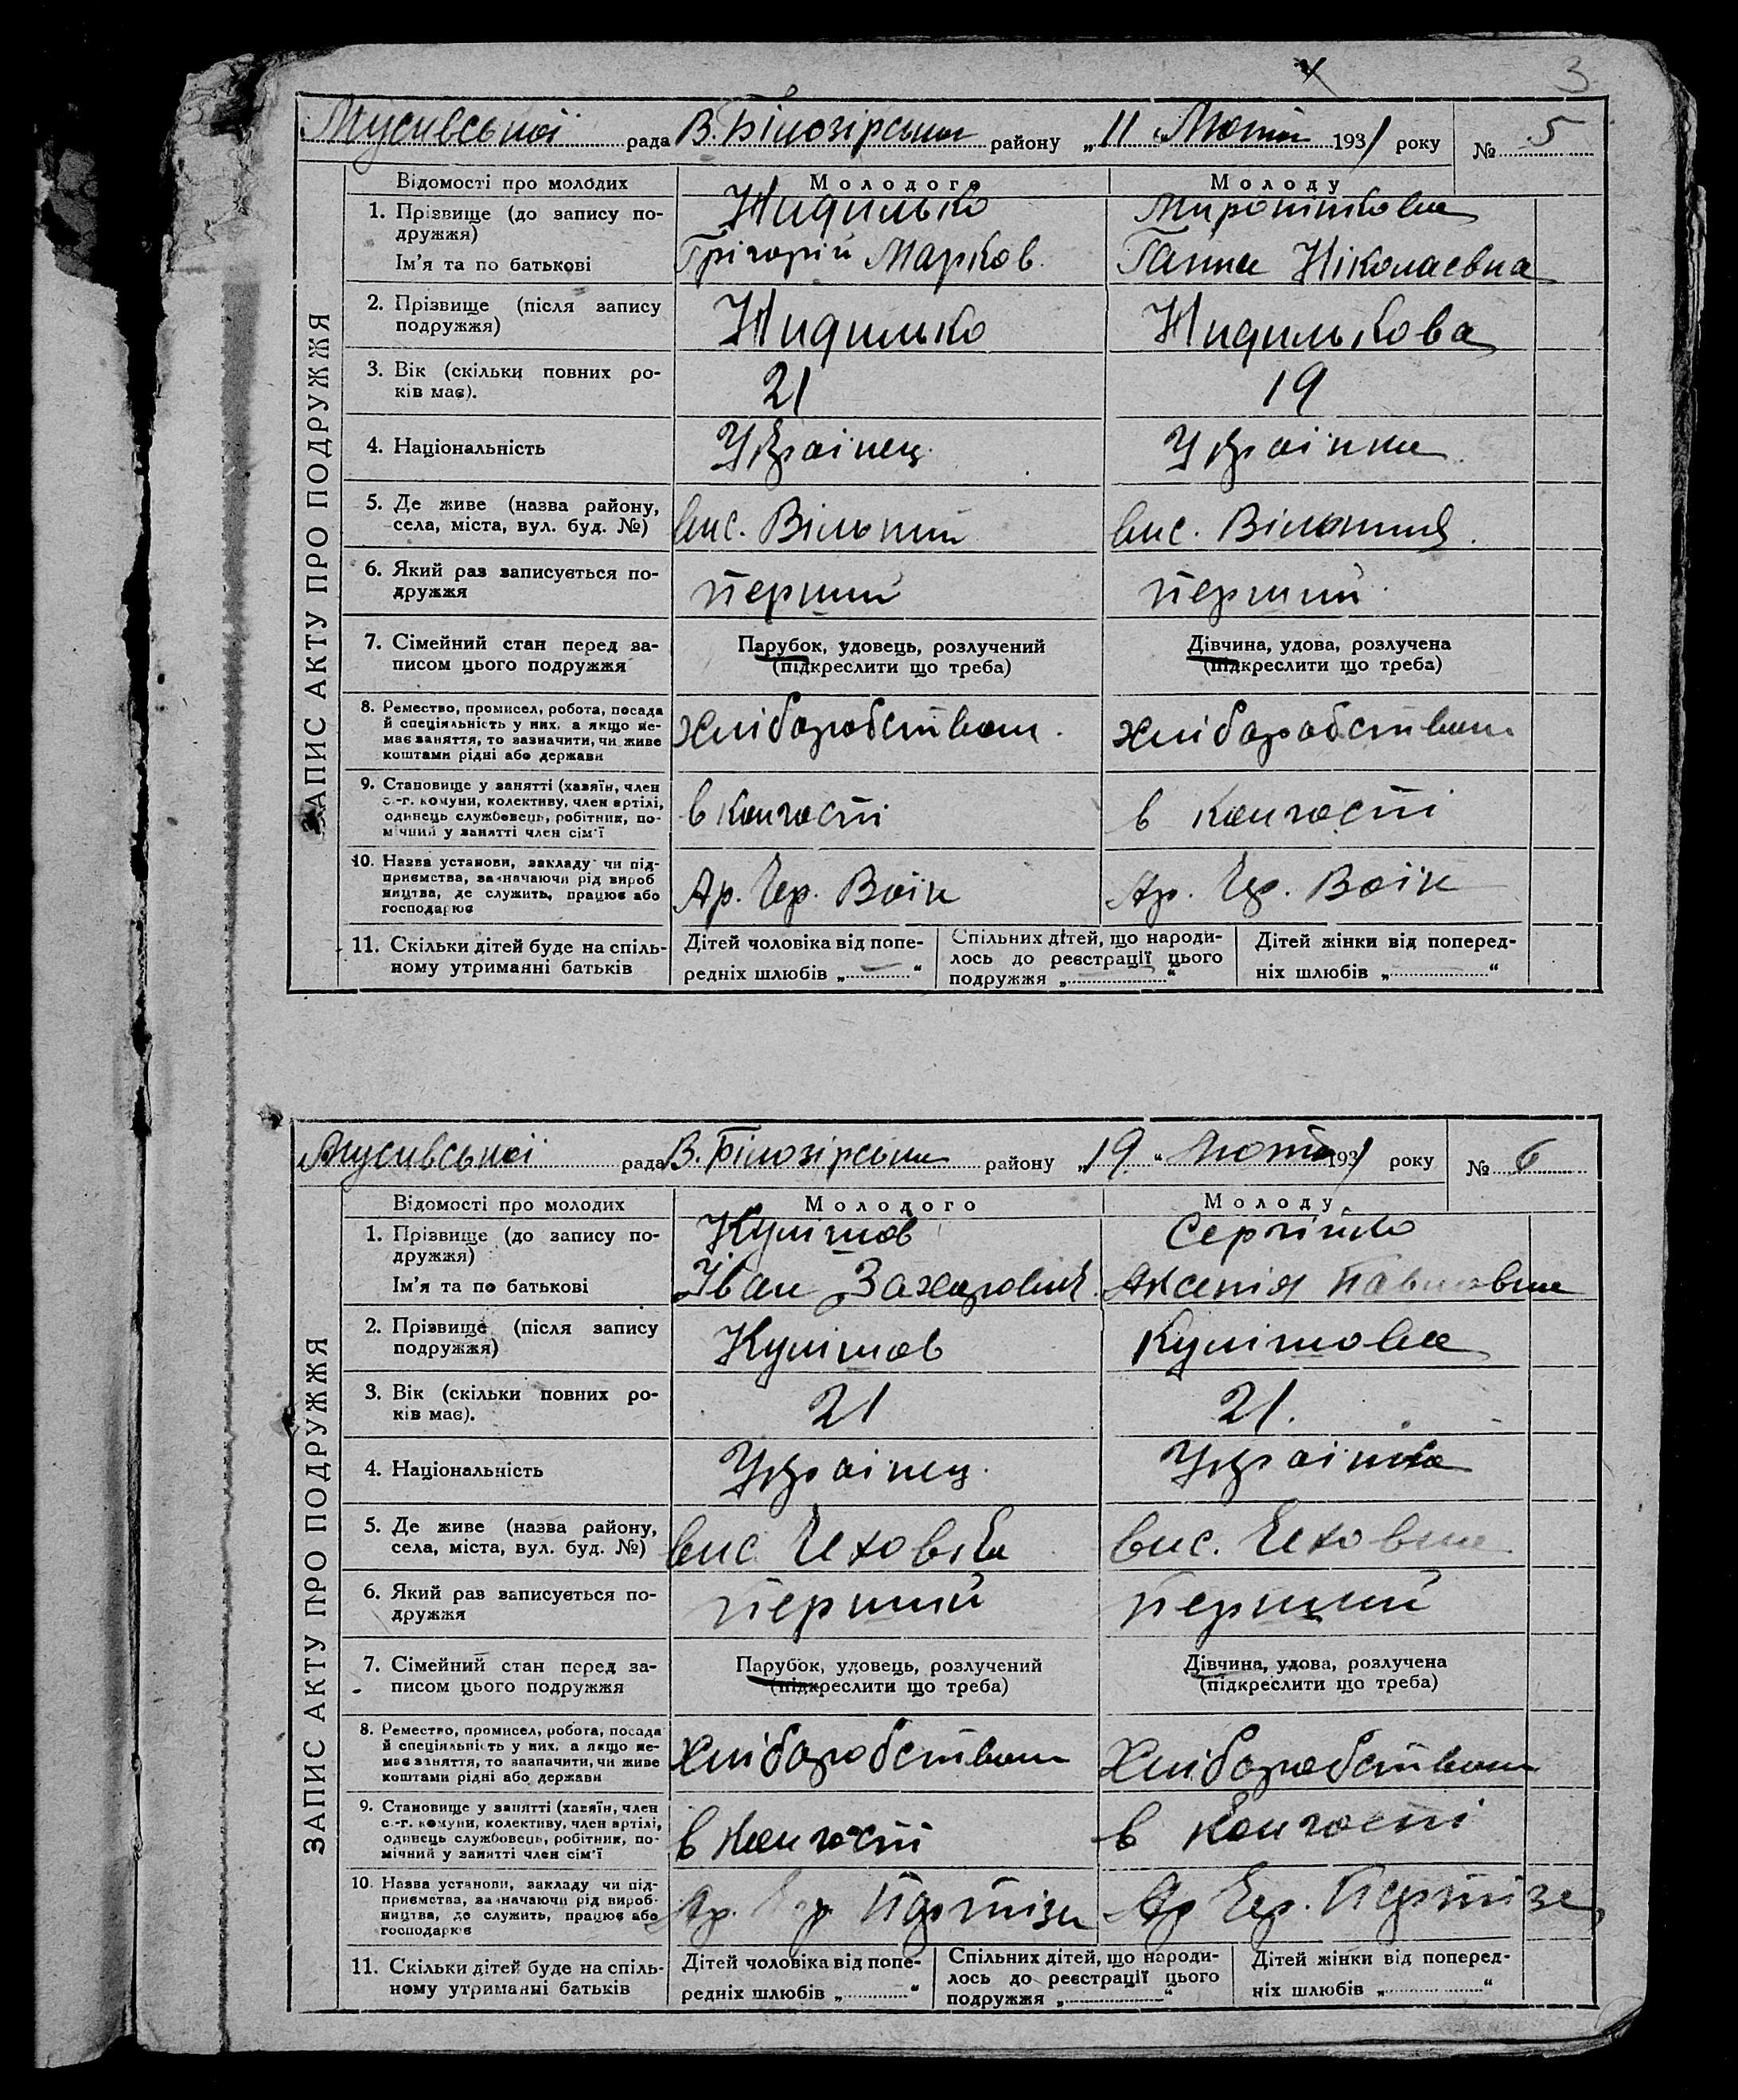 3
Мусивської рада В. Білозірськи району „11 „ Лютий 1931 року № 5
ЗАПИС АКТУ ПРО ПОДРУЖЖЯ
Відомості про молодих Молодого Молоду
1. Прізвище (до запису по- Жидилько
дружжя)
Ім'я та по батькові Грігорій Марков. Ганна Ніколаевна
2. Прізвище (після запису Жидилько Жидилькова
подружжя)
3. Вік (скільки повних ро- 21 19
ків має).
4. Національність Украінец. Украінка
5. Де живе (назва району, вис. Вільний вис. Вільний.
села, міста, вул. буд. №)
6. Який раз записується по- перший перший
дружжя
7. Сімейний стан перед за- Парубок, удовець, розлучений Дівчина, удова, розлучена
писом цього подружжя (підкреслити що треба) (підкреслити що треба)
8. Ремество, промисел, робота, посада хліборобством. хліборобством
й спеціяльність у них, а якщо не-
має заняття, то зазначити, чи живе
коштами рідні або держави
9. Становище у занятті (хазяїн, член в колгоспі в колгоспі
с.-г. комуни, колективу, член артілі,
одинець службовець, робітник, по-
мічний у занятті член сім'ї
10. Назва установи, закладу чи під- Ар. Чер. Воін Ар. Чер. Воін
приємства, зазначаючи рід вироб
ництва, де служить, працює або
господарює
11. Скільки дітей буде на спіль- Дітей чоловіка від попе- Спільних дітей, що народи- Дітей жінки від поперед-
ному утриманні батьків редніх шлюбів „ — “ лось до реєстрації цього ніх шлюбів „ “
подружжя „ “
Мусивської рада В. Білозірськи району „19 „ Лютий 1931 року № 6
ЗАПИС АКТУ ПРО ПОДРУЖЖЯ
Відомості про молодих Молодого Молоду
1. Прізвище (до запису по- Кулішов Сергійко
дружжя)
Ім'я та по батькові Іван Захарович Аксенія Павловна
2. Прізвище (після запису Кулішов Кулішова
подружжя)
3. Вік (скільки повних ро- 21 21.
ків має).
4. Національність Украінец. Украінка
5. Де живе (назва району, вис Чеховка вис. Чеховка
села, міста, вул. буд. №)
6. Який раз записується по- перший перший
дружжя
7. Сімейний стан перед за- Парубок, удовець, розлучений Дівчина, удова, розлучена
писом цього подружжя (підкреслити що треба) (підкреслити що треба)
8. Ремество, промисел, робота, посада хліборобством хліборобством
й спеціяльність у них, а якщо не-
має заняття, то зазначити, чи живе
коштами рідні або держави
9. Становище у занятті (хазяїн, член в колгоспі в колгоспі
с.-г. комуни, колективу, член артілі,
одинець службовець, робітник, по-
мічний у занятті член сім'ї
10. Назва установи, закладу чи під- Ар. Чер. Партіза Ар Чер. Партіза
приємства, зазначаючи рід вироб-
ництва, де служить, працює або
господарює
11. Скільки дітей буде на спіль- Дітей чоловіка від попе- Спільних дітей, що народи- Дітей жінки від поперед-
ному утриманні батьків редніх шлюбів „ “ лось до реєстрації цього ніх шлюбів „ “
подружжя „ “